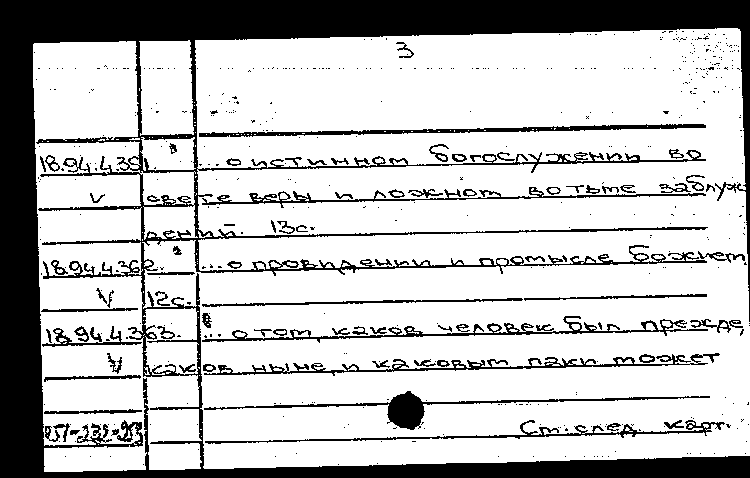 3
18.94.4.361. ...о истинном богослужении во
V свете веры и ложном во тьме заблуж
дений. 13с.
18.94.4.362. ...о провидении и промысле божием
V 12с.
18.94.4.363. ...о том, каков человек был прежде,
V каков ныне, и каковым паки может
См. след. карт.